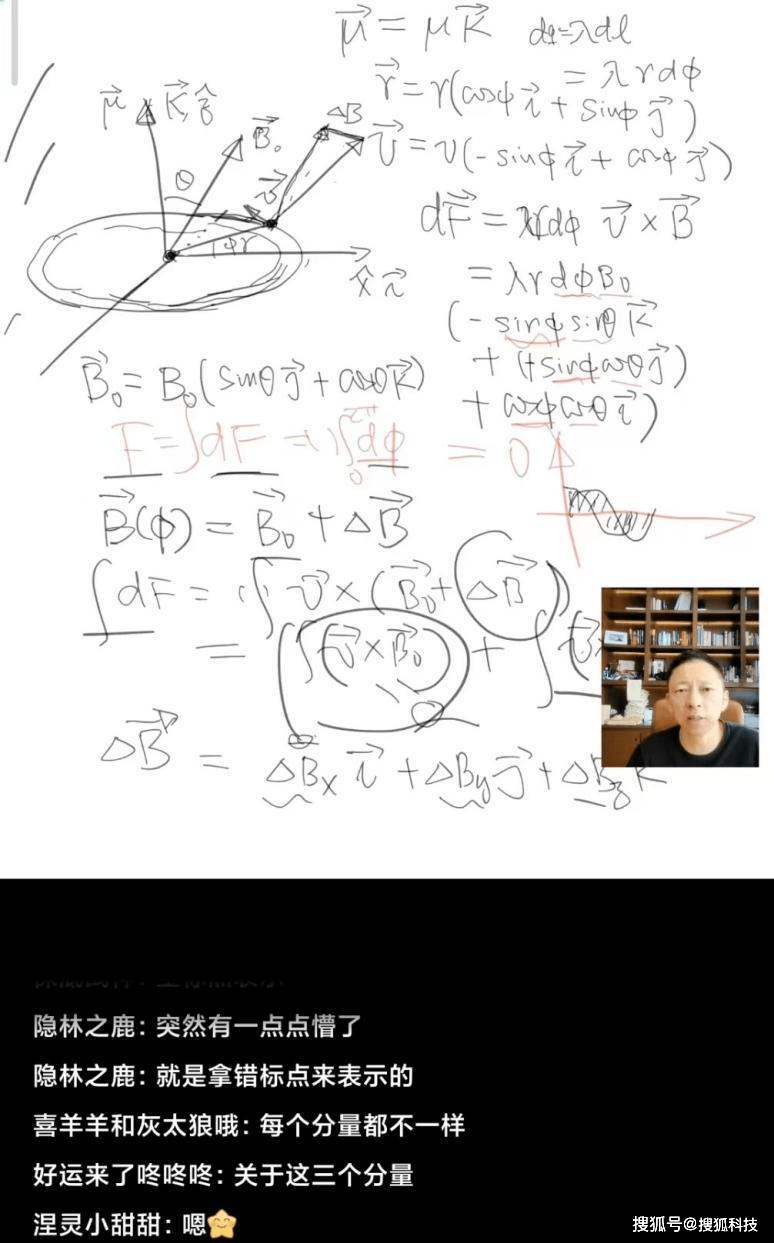 μ⃗ = μK⃗  dq=λdl
= λrdφ
r⃗ = r(cosφ i⃗ + sinφ j⃗)
μ⃗ K⃗, ẑ
ΔB
B⃗₀
θ
v⃗
v⃗ = v(-sinφ i⃗ + cosφ j⃗)
φ r
x̂ i⃗
dF⃗ = λrdφ v⃗ × B⃗
= λrdφB₀
(-sinφ sinθ K⃗
+ (+sinφcosθ j⃗)
+ cosφcosθ i⃗)
B⃗₀ = B₀(sinθ j⃗ + cosθ K⃗)
F = ∫dF = ∫₀ dφ = 0
B⃗(φ) = B⃗₀ + ΔB⃗
∫dF = ∫ v⃗ × (B⃗₀ + ΔB⃗)
= ∫(v⃗ × B⃗₀) + ∫ v⃗
ΔB⃗ = ΔBₓ i⃗ + ΔBy j⃗ + ΔBz K
隐林之鹿: 突然有一点点懵了
隐林之鹿: 就是拿错标点来表示的
喜羊羊和灰太狼哦: 每个分量都不一样
好运来了咚咚咚: 关于这三个分量
涅灵小甜甜: 嗯
搜狐号@搜狐科技